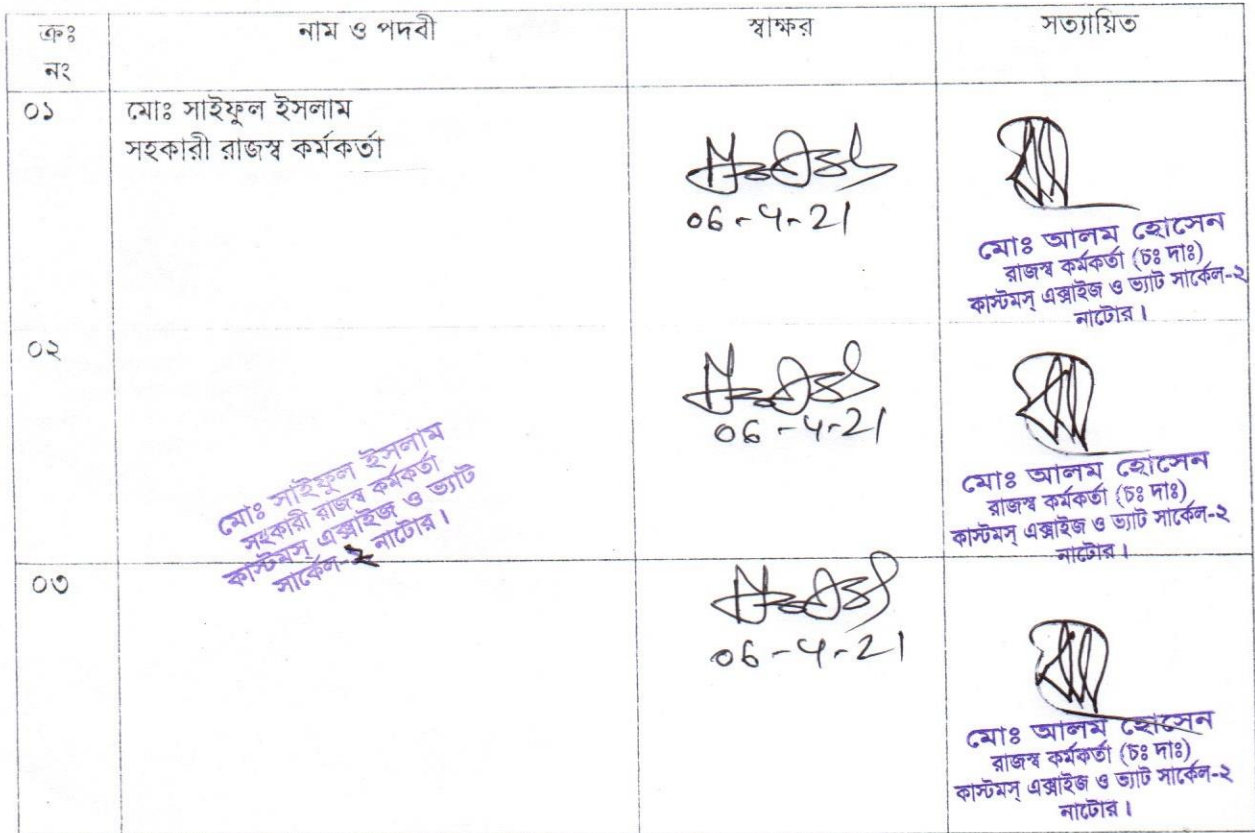 ক্রঃ নং
নাম ও পদবী
স্বাক্ষর
সত্যায়িত
০১
মোঃ সাইফুল ইসলাম
সহকারী রাজস্ব কর্মকর্তা
06-4-21
মোঃ আলম হোসেন
রাজস্ব কর্মকর্তা (চঃ দাঃ)
কাস্টমস্ এক্সাইজ ও ভ্যাট সার্কেল-২
নাটোর।
০২
মোঃ সাইফুল ইসলাম
সহকারী রাজস্ব কর্মকর্তা
কাস্টমস এক্সাইজ ও ভ্যাট
সার্কেল-২ নাটোর।
06-4-21
মোঃ আলম হোসেন
রাজস্ব কর্মকর্তা (চঃ দাঃ)
কাস্টমস্ এক্সাইজ ও ভ্যাট সার্কেল-২
নাটোর।
০৩
06-4-21
মোঃ আলম হোসেন
রাজস্ব কর্মকর্তা (চঃ দাঃ)
কাস্টমস্ এক্সাইজ ও ভ্যাট সার্কেল-২
নাটোর।